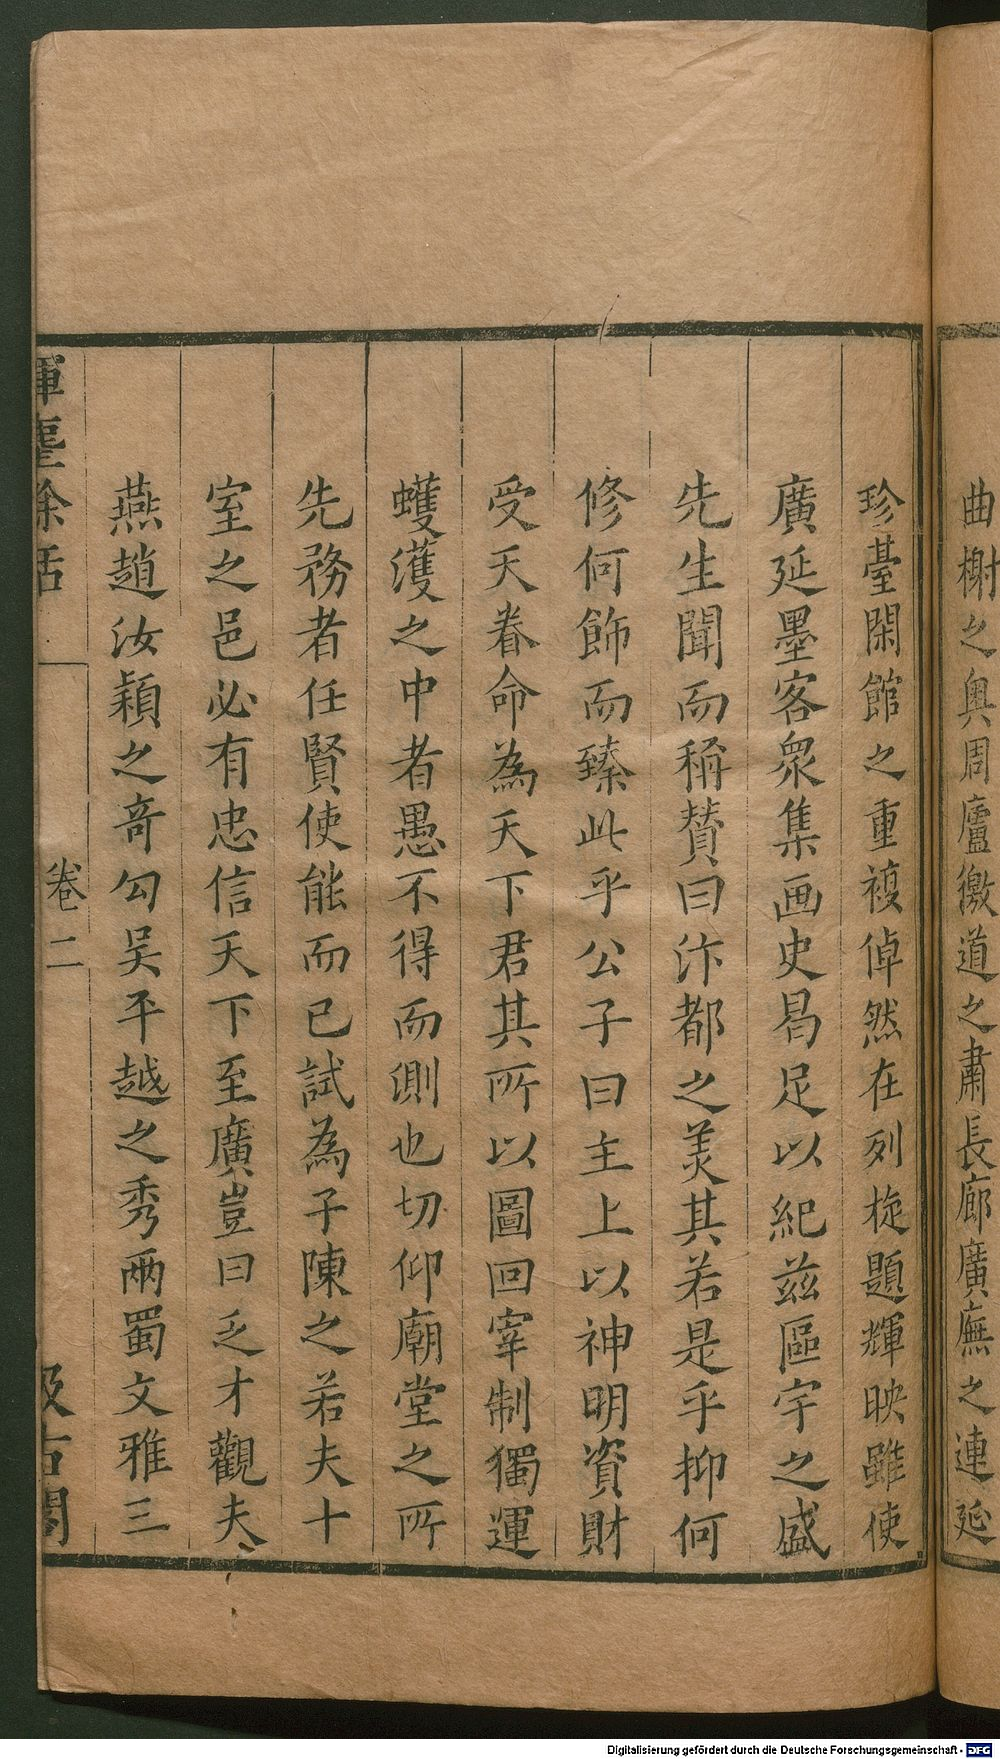 曲榭之奧周廬徼道之肅長廊廣廡之連延
珍臺閑館之重複倬然在列旋題輝映雖使
廣延墨客衆集画史曷足以紀兹區宇之盛
先生聞而稱賛曰汴都之美其若是乎抑何
修何飾而臻此乎公子曰主上以神明資財
受天眷命為天下君其所以圖回宰制獨運
蠖濩之中者愚不得而測也切仰廟堂之所
先務者任賢使能而已試為子陳之若夫十
室之邑必有忠信天下至廣豈曰乏才觀夫
燕趙汝穎之奇勾吴平越之秀兩蜀文雅三
揮麈餘話 卷二 汲古閣
Digitalisierung gefördert durch die Deutsche Forschungsgemeinschaft - DFG